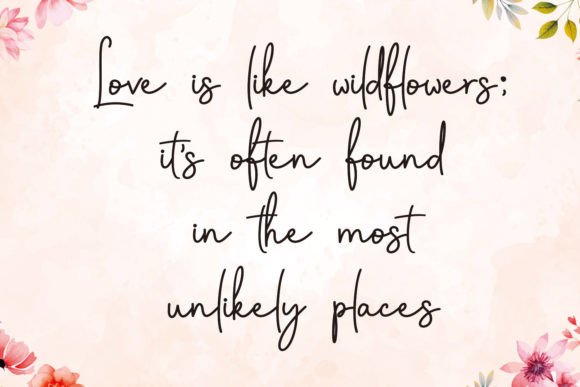 Love is like wildflowers;
it's often found
in the most
unlikely places